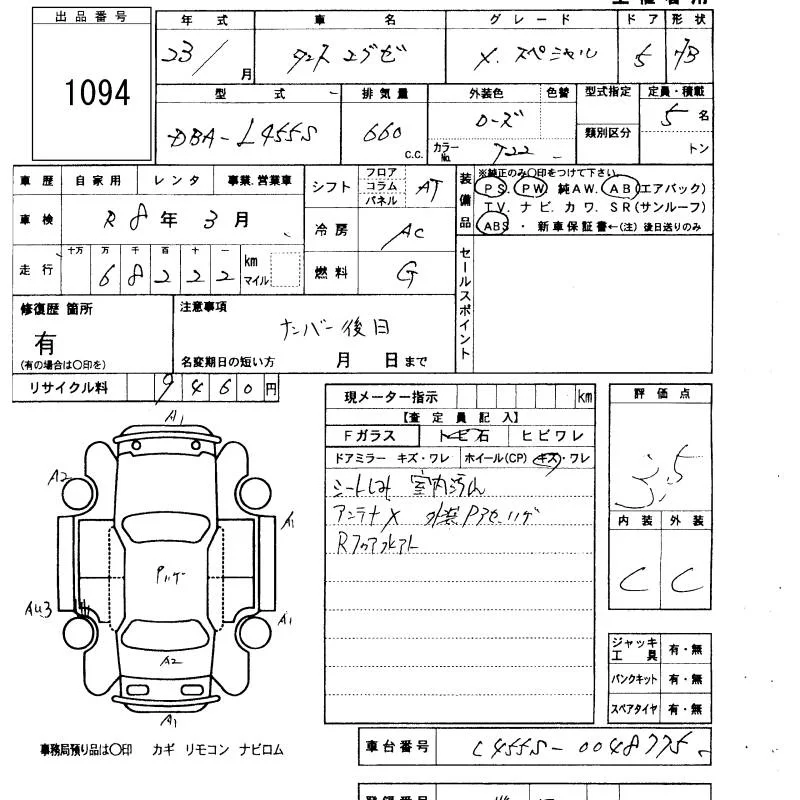 出品番号
1094
年式 車名 グレード ドア 形状
23/ 月 タント エグゼ X.スペシャル 5 HB
型式 排気量 外装色 色替 型式指定 定員・積載
DBA-L455S 660 c.c. ローズ 類別区分 5 名
カラーNo. T22 トン
車歴 自家用 レンタ 事業.営業車
シフト フロア コラム パネル AT
装備品
※純正のみ〇印をつけて下さい。
PS. PW 純AW. AB(エアバック)
TV. ナビ. カワ. SR(サンルーフ)
ABS ・ 新車保証書←(注) 後日送りのみ
車検 R8年 3月
冷房 AC
走行 十万 万 千 百 十 一
68222 km マイル
燃料 G
セールスポイント
修復歴 箇所
有
(有の場合は〇印を)
注意事項
ナンバー後日
名変期日の短い方 月 日まで
リサイクル料 9460円
現メーター指示 km
【査定員記入】
Fガラス トビ石 ヒビワレ
ドアミラー キズ・ワレ ホイール(CP) キズ・ワレ
シートしみ 室内汚れ
アンテナX 外装Pアセ、ハゲ
評価点
3.5
内装 外装
C C
A1
A2
A1
Pハゲ
AU3
A1
A2
A1
ジャッキ工具 有・無
パンクキット 有・無
スペアタイヤ 有・無
事務局預り品は〇印 カギ リモコン ナビロム
車台番号 L455S-0048775